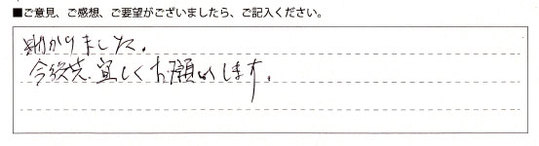 ■ご意見、ご感想、ご要望がございましたら、ご記入ください。
助かりました。
今後共、宜しくお願いします。